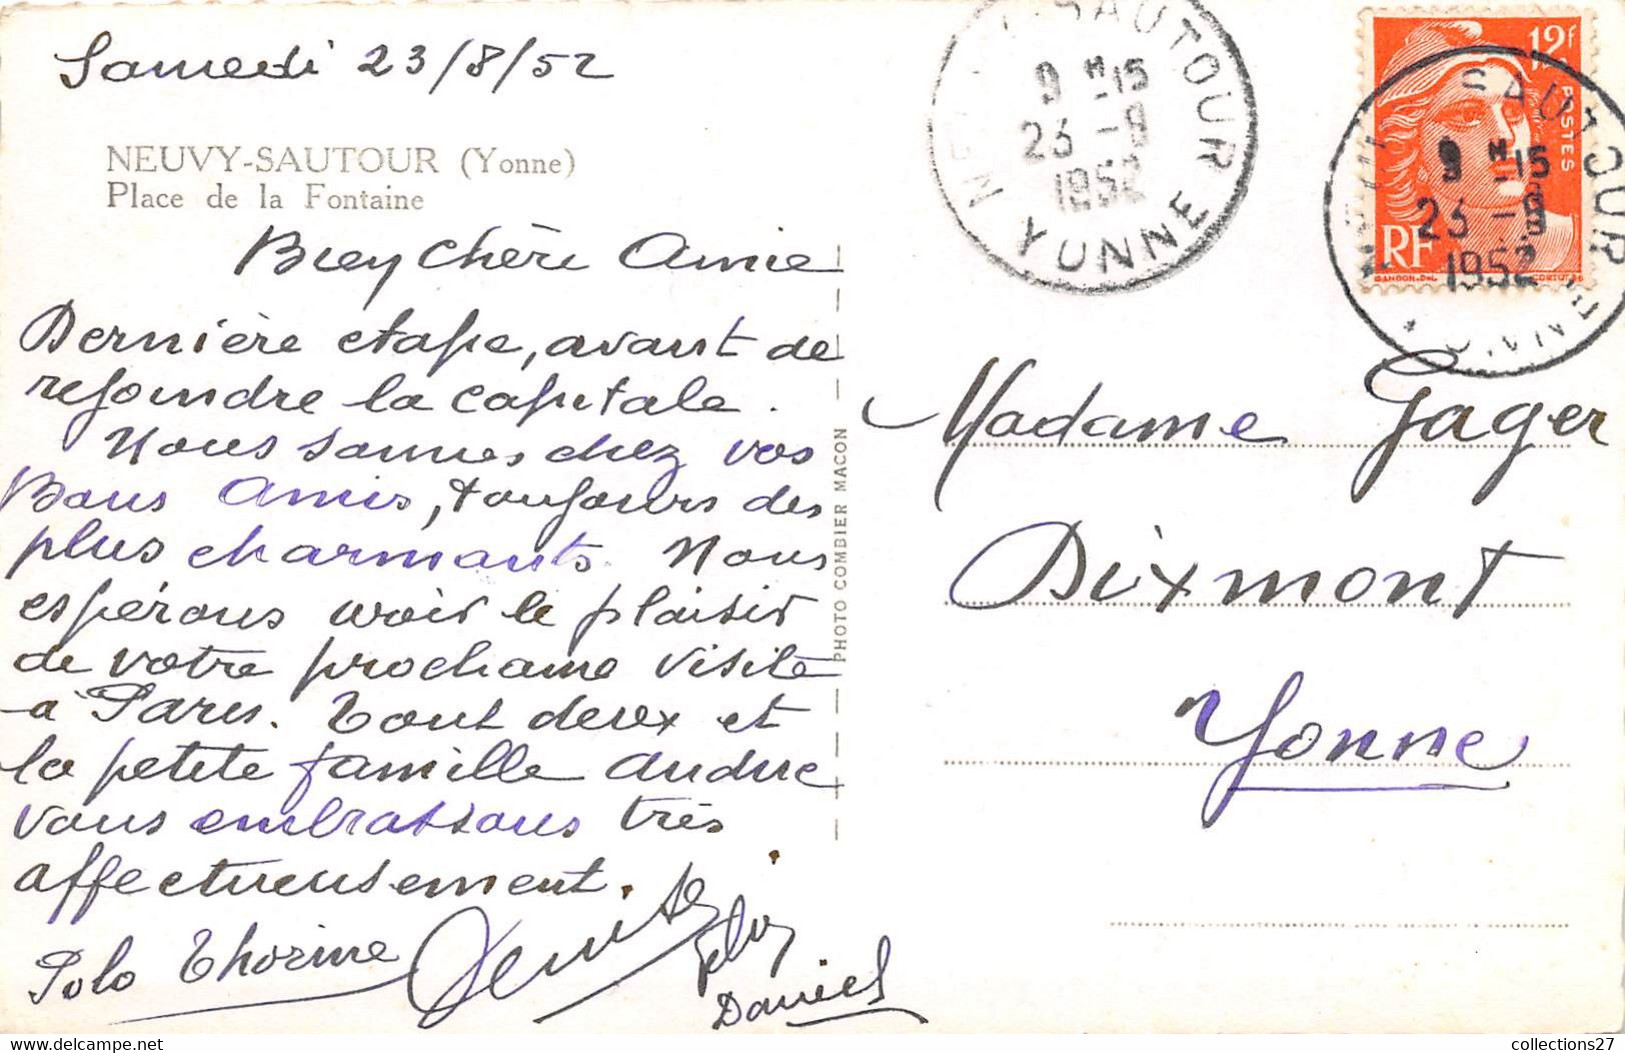 Samedi 23/8/52
NEUVY-SAUTOUR (Yonne)
Place de la Fontaine
Bien chère Amie
Dernière etape, avant de
rejoindre la capitale.
Nous sommes chez vos
Bons Amis, toujours des
plus charmants. Nous
espérons avoir le plaisir
de votre prochaine visite
à Paris. Tout deux et
la petite famille
vous embrassons très
affectueusement.
Polo Thorine Denise
Daniel
PHOTO COMBIER MACON
SAUTOUR
9 H -15
23 -8
1952
YONNE
12f
POSTES
RF
GANDON.DEL
SAUTOUR
9 H -15
23 -8
1952
YONNE
Madame Jager
Dixmont
Yonne
collections27